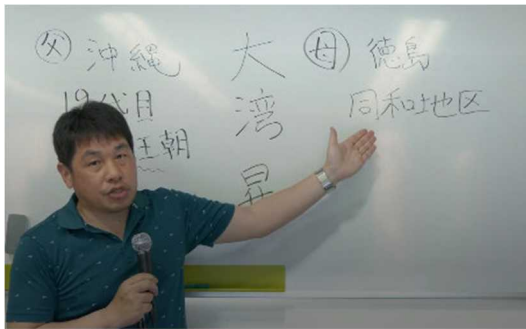 父 沖縄
19代目
王朝
大湾昇
母 徳島
同和地区